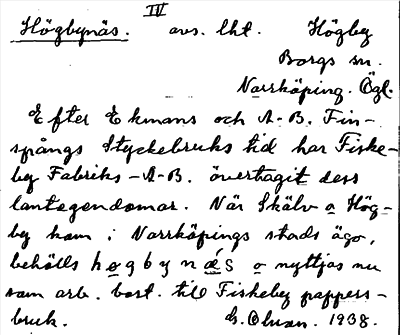 IV
Högbynäs. avs. lht. Högby
Borgs sn.
Norrköping. Ögl.
Efter Ekmans och A-B. Fin-
spångs Styckebruks tid har Fiske-
by Fabriks-A-B. övertagit dess
lantegendomar. När Skälv o Hög-
by kom i Norrköpings stads ägo,
behölls högbynä́s o nyttjas nu
som arb. bost. till Fiskeby pappers-
bruk. 1938.